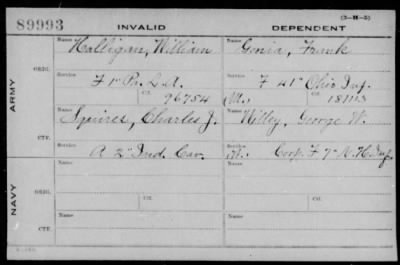 89993 INVALID DEPENDENT (3-H-5)
ARMY ORIG. Name Halligan, William Name Genia, Frank
Service F 1" Pa. L. A. Service F 41" Ohio Inf.
Ctf. 96754 (M.) Ctf. 
CTF. Name Squires, Charles J. Name George W.
Service A 2" Ind. Cav. Service Corp. F 7" N. H. Inf.
NAVY ORIG. Name Name
Service Ctf. Service Ctf.
CTF. Name Name